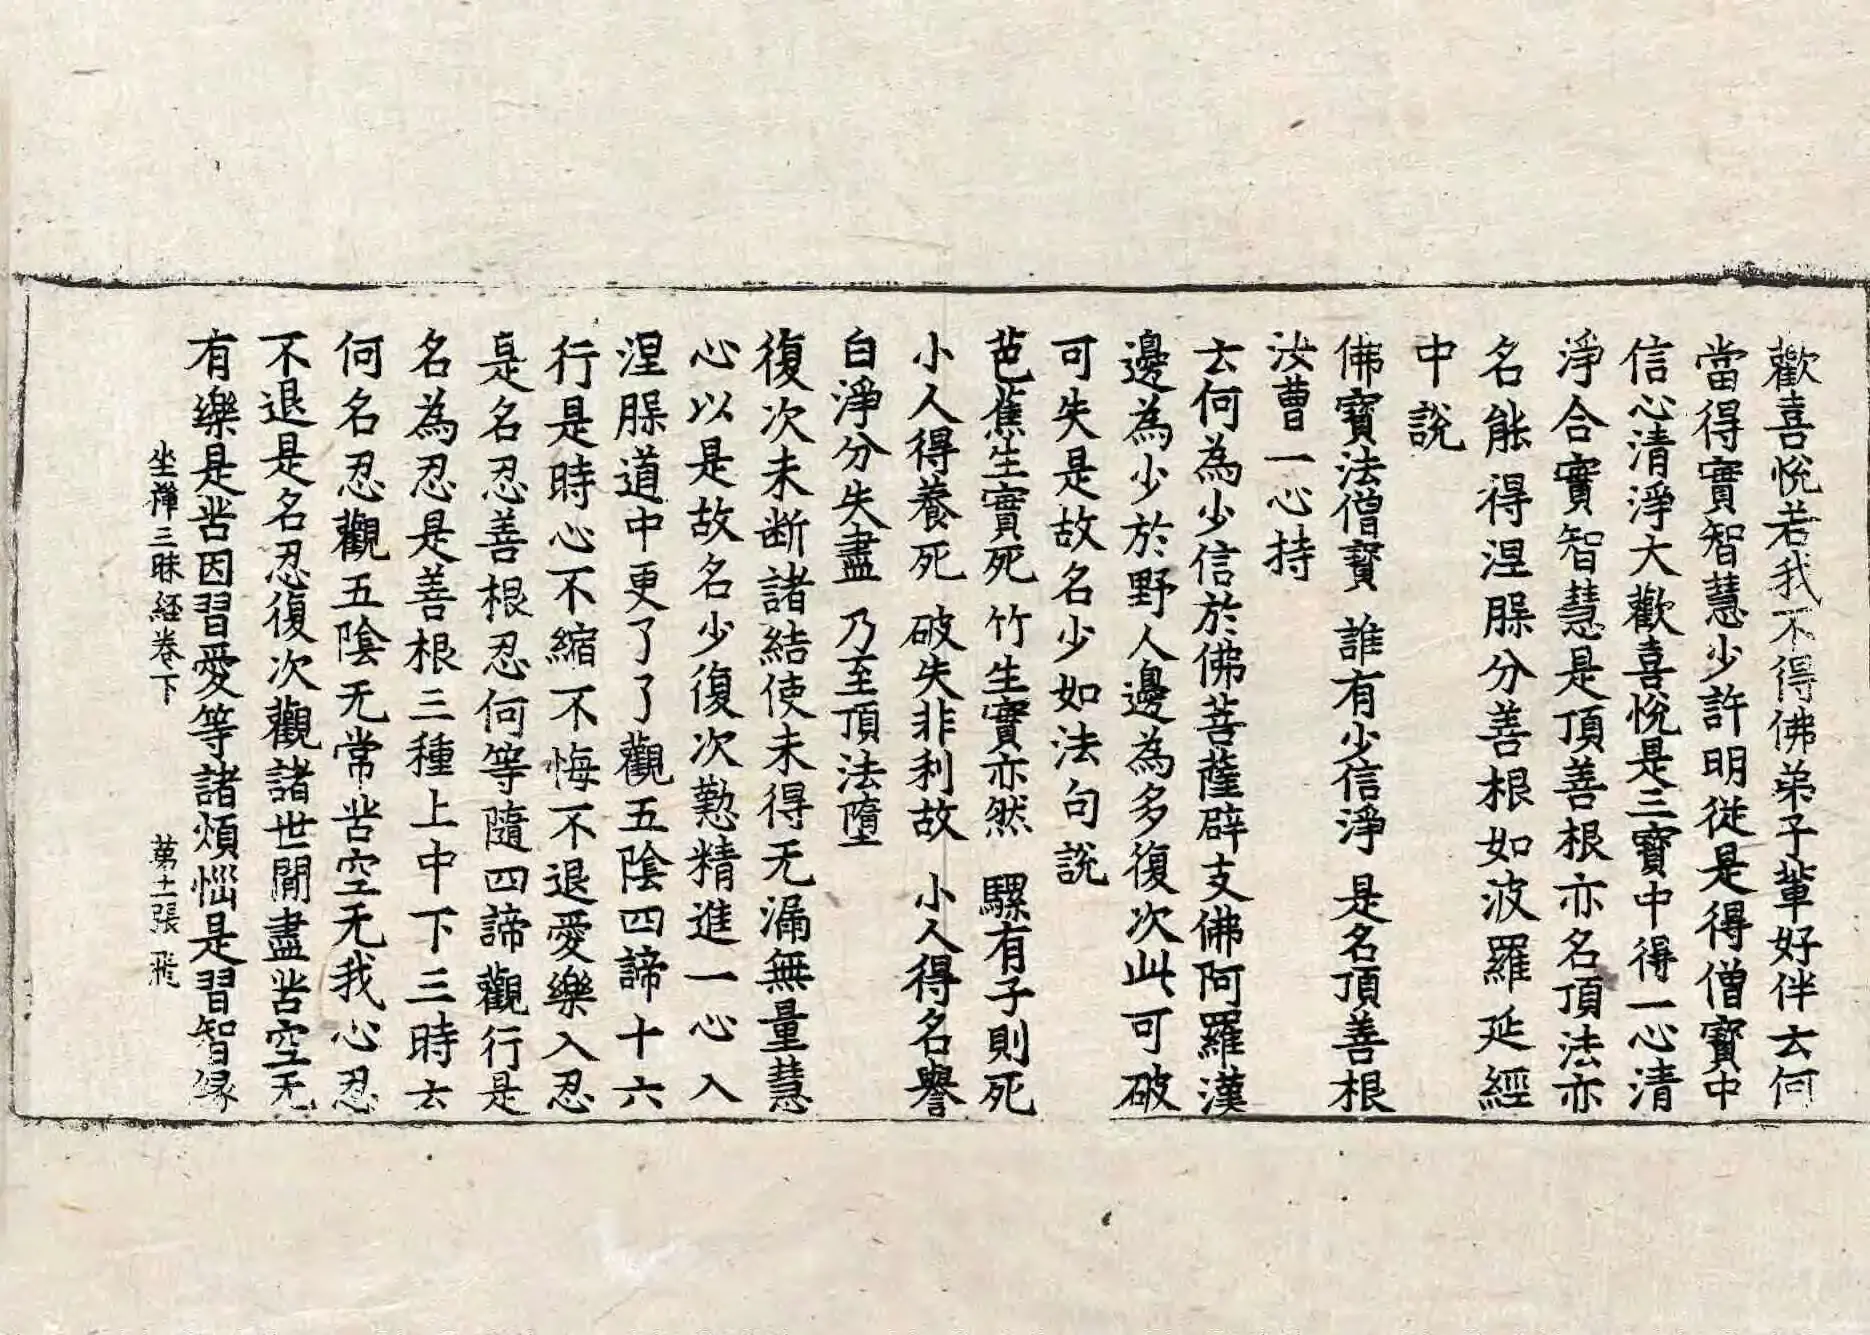 歡喜悅若我不得佛弟子輩好伴云何
當得實智慧少許明從是得僧寶中
信心清淨大歡喜悅是三寶中得一心清
淨合實智慧是頂善根亦名頂法亦
名能得涅脲分善根如波羅延經
中說
佛寶法僧寶 誰有少信淨 是名頂善根
汝曹一心持
云何為少信於佛菩薩辟支佛阿羅漢
邊為少於野人邊為多復次此可破
可失是故名少如法句說
芭蕉生實死 竹生實亦然 騾有子則死
小人得養死 破失非利故 小人得名譽
白淨分失盡 乃至頂法墮
復次未断諸結使未得无漏無量慧
心以是故名少復次懃精進一心入
涅脲道中更了了觀五陰四諦十六
行是時心不縮不悔不退愛樂入忍
是名忍善根忍何等隨四諦觀行是
名為忍是善根三種上中下三時云
何名忍觀五陰无常苦空无我心忍
不退是名忍復次觀諸世間盡苦空无
有樂是苦因習愛等諸煩惱是習智緣
坐禪三昧経卷下 苐十一張 飛